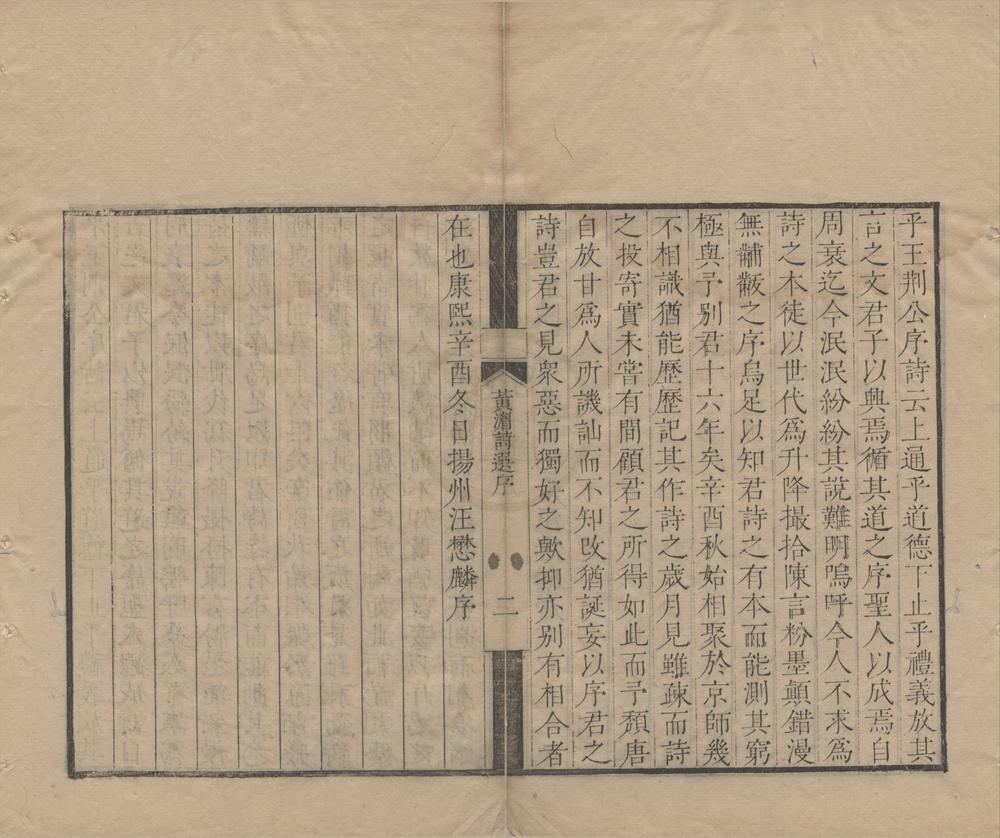 乎王荆公序詩云上通乎道德下止乎禮義放其
言之文君子以興焉循其道之序聖人以成焉自
周衰迄今泯泯紛紛其說難明嗚呼今人不求爲
詩之本徒以世代爲升降撮拾陳言粉墨顛錯漫
無黼黻之序烏足以知君詩之有本而能測其窮
極與予别君十六年矣辛酉秋始相聚於京師幾
不相識猶能歷歷記其作詩之歲月見雖疎而詩
之投寄實未嘗有間顧君之所得如此而予頽唐
自放甘爲人所譏訕而不知改猶誕妄以序君之
詩豈君之見衆惡而獨好之歟抑亦别有相合者
黃湄詩選序
二
在也康熙辛酉冬日揚州汪懋麟序